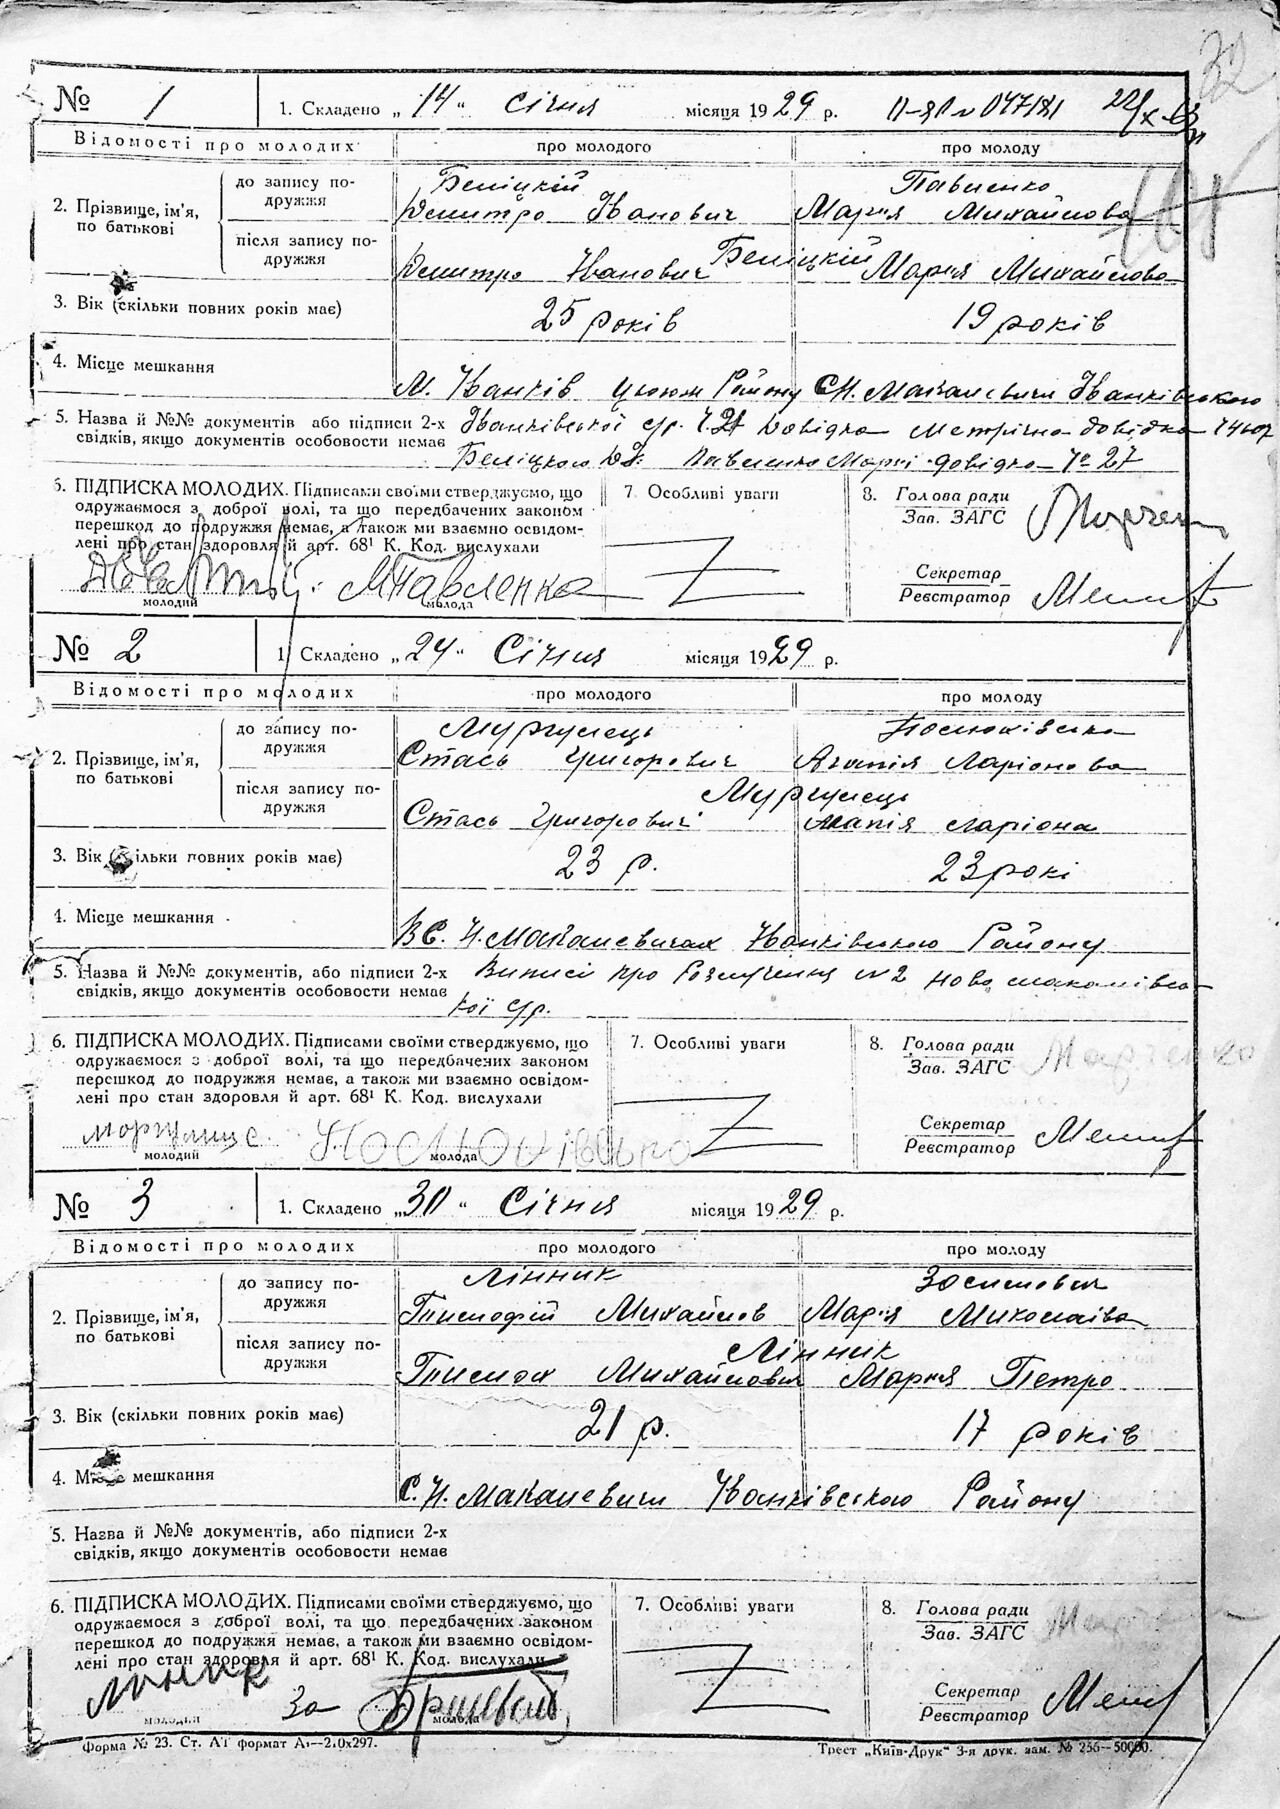 32
№ 1 1. Складено „14“ Січня місяця 1929 р.
Відомості про молодих про молодого про молоду
2. Прізвище, ім'я, по батькові
до запису по-
дружжя
Беліцкій Павленко
Дмитро Іванович Мария Михайлова
після запису по-
дружжя
Беліцкій
Дмитро Іванович Мария Михайлова
3. Вік (скільки повних років має) 25 років 19 років
4. Місце мешкання
М. Іванків Району С. Н. Макалевичи Іванківського
5. Назва й №№ документів або підписи 2-х Іванківської с/р. Ч. 21 Довідка метрична довідка
свідків, якщо документів особовости немає Беліцкого Павленко Марії довідка № 27
6. ПІДПИСКА МОЛОДИХ. Підписами своїми стверджуємо, що
одружаємося з доброї волі, та що передбачених законом
перешкод до подружжя немає, а також ми взаємно освідом-
лені про стан здоровля й арт. 68¹ К. Код. вислухали
МПавленко
молодий молода
7 Особливі уваги
8. Голова ради
Зав. ЗАГС
Марчен
Секретар
Реєстратор
№ 2 1. Складено „24“ Січня місяця 1929 р.
Відомості про молодих про молодого про молоду
2. Прізвище, ім'я,
по батькові
до запису по-
дружжя
Мургулець
Стась Григорович Агапія Ларіонова
після запису по-
дружжя
Мургулець
Стась Григорович Агапія Ларіона
3. Вік (скільки повних років має) 23 р. 23 рокі
4. Місце мешкання
В С. Н. Макалевичах Іванківського Району
5. Назва й №№ документів, або підписи 2-х Виписі про Розлучення № 2 Ново
свідків, якщо документів особовости немає кої с/р.
6. ПІДПИСКА МОЛОДИХ. Підписами своїми стверджуємо, що
одружаємося з доброї волі, та що передбачених законом
перешкод до подружжя немає, а також ми взаємно освідом-
лені про стан здоровля й арт. 68¹ К. Код. вислухали
молодий молода
7. Особливі уваги
8. Голова ради
Зав. ЗАГС
Марченко
Секретар
Реєстратор
№ 3 1. Складено „30“ Січня місяця 1929 р.
Відомості про молодих про молодого про молоду
2. Прізвище, ім'я,
по батькові
до запису по-
дружжя
Лінник Зосимович
Тимофій Михайлов Марія Миколаіва
після запису по-
дружжя
Лінник
Михайлович Мария Петро
3. Вік (скільки повних років має) 21 р. 17 років
4. Місце мешкання
С. Н. Макалевичи Іванківського Району
5. Назва й №№ документів, або підписи 2-х
свідків, якщо документів особовости немає
6. ПІДПИСКА МОЛОДИХ. Підписами своїми стверджуємо, що
одружаємося з доброї волі, та що передбачених законом
перешкод до подружжя немає, а також ми взаємно освідом-
лені про стан здоровля й арт. 68¹ К. Код. вислухали
Лінник За
молодий молода
7. Особливі уваги
8. Голова ради
Зав. ЗАГС
Секретар
Реєстратор
Форма № 23. Ст. А1 формат А₁—210х297. Трест „Київ-Друк“ 3-я друк. зам. № 256—50000.